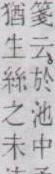 箋云於池中
猶生絲之未